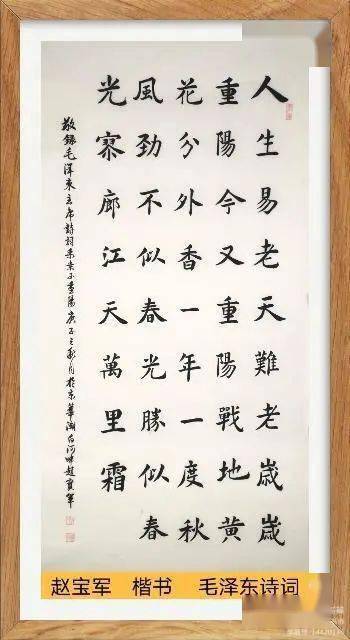 人生易老天難老歲歲
重陽今又重陽戰地黄
花分外香一年一度秋
風劲不似春光勝似春
光寥廊江天萬里霜
敬録毛澤東主席詩詞采桑子重陽庚子之秋月於京華河畔趙寶軍
赵宝军 楷书 毛泽东诗词